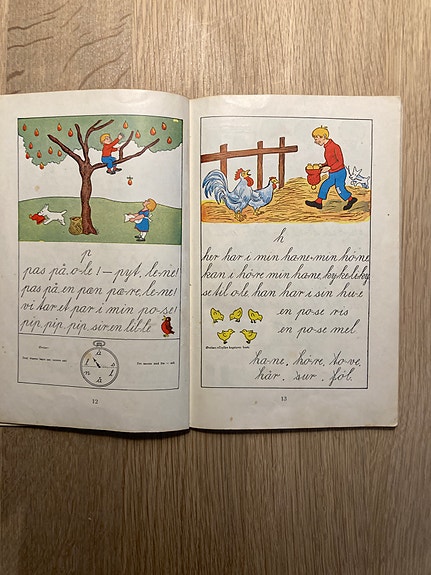 p
pas på, o-le! — pyt, le-ne!
pas på, en pæn pæ-re, le-ne!
vi tar et par i min po-se!
pip, pip, pip, sir en lil-le
12
h
her har i min ha-ne, min hø-ne
kan i hø-re min ha-ne, ky-ke-le-ky
se til o-le han har i sin hu-e
en po-se ris
en po-se mel
ha-ne, hø-re, to-ve,
hår, sur, føl.
13